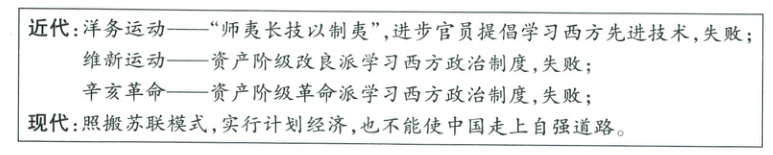 近代:洋务运动——“师夷长技以制夷”,进步官员提倡学习西方先进技术,失败;
维新运动——资产阶级改良派学习西方政治制度,失败;
辛亥革命——资产阶级革命派学习西方政治制度,失败;
现代:照搬苏联模式,实行计划经济,也不能使中国走上自强道路。